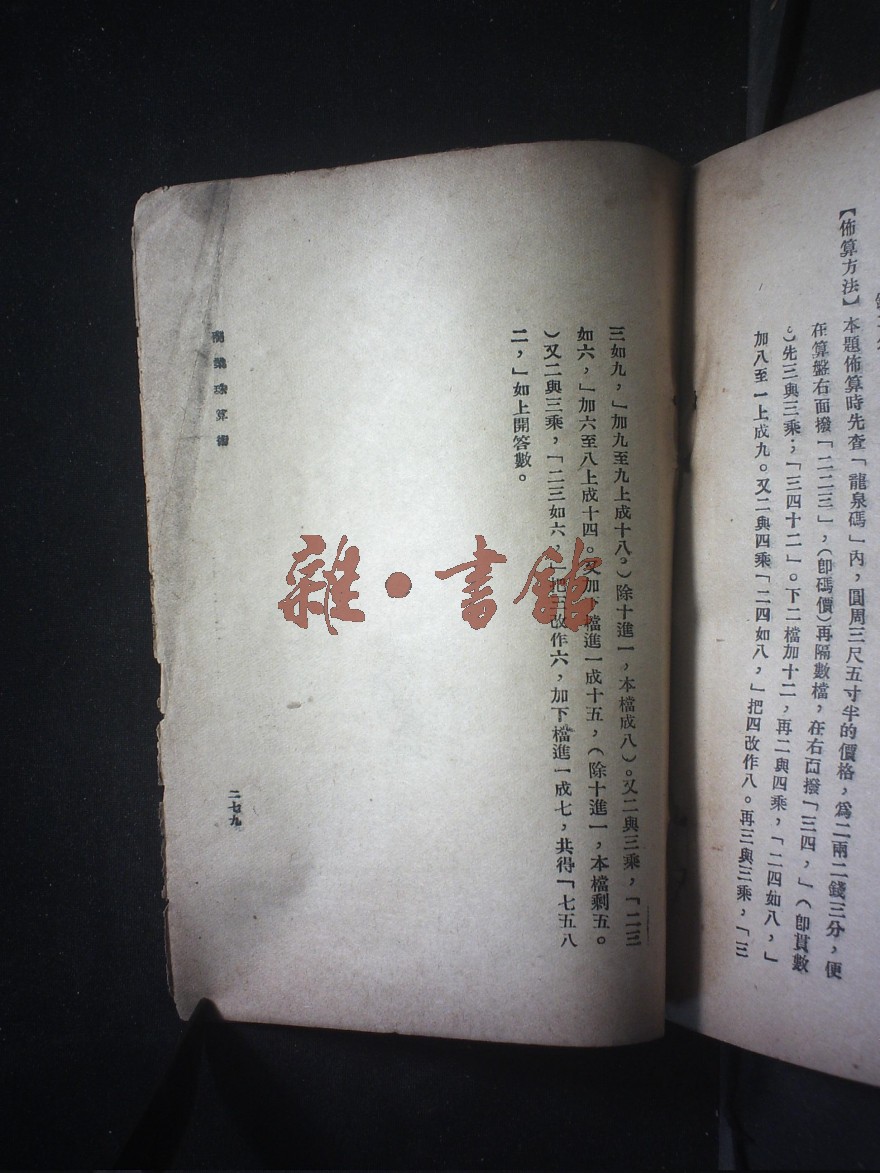 【佈算方法】本題佈算時先查「龍泉碼」內，圓周三尺五寸半的價格，爲二兩二錢三分，便
在算盤右面撥「二二三」，（卽碼價）再隔數檔，在右面撥「三四，」（卽貫數
。）先三與三乘；「三四十二」。下二檔加十二，再二與四乘，「二四如八，」
加八至一上成九。又二與四乘「二四如八，」把四改作八。再三與三乘，「三
三如九，」加九至九上成十八。）除十進一，本檔成八）。又二與三乘，「二三
如六，」加六至八上成十四。又加檔進一成十五，（除十進一，本檔剩五。
）又二與三乘，「二三如六，把改作六，加下檔進一成七，共得「七五八
二，」如上開答數。
珠算術
二七九
雜·書館